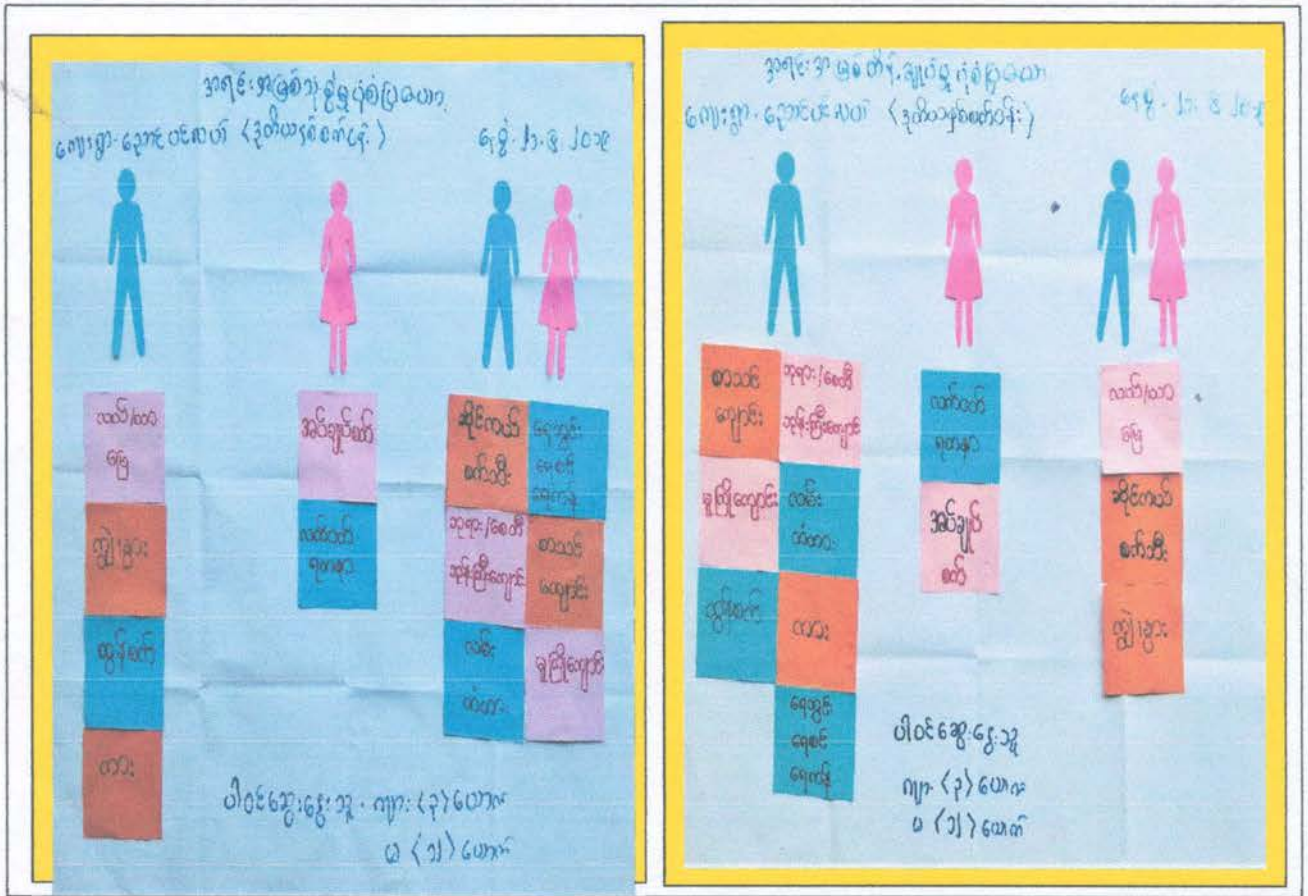 အရင်းအမြစ်သုံးစွဲမှုပုံစံပြဇယား
ကျေးရွာ - ညောင်ပင်လယ် (ဒုတိယနှစ်စက်ဝန်း) နေ့စွဲ - ၂၁.၅.၂၀၁၉
လယ်/ယာ
မြေ
ကျွဲ၊နွား
ထွန်စက်
ကား
အပ်ချုပ်စက်
လက်ဝတ်
ရတနာ
ဆိုင်ကယ်
စက်ဘီး
ရေတွင်း
ရေစင်
ရေကန်
ဘုရား/စေတီ
ဘုန်းကြီးကျောင်း
စာသင်
ကျောင်း
လမ်း
တံတား
မူကြိုကျောင်း
ပါဝင်ဆွေးနွေးသူ - ကျား (၃) ယောက်
မ (၁၂) ယောက်
အရင်းအမြစ်ထိန်းချုပ်မှုပုံစံပြဇယား
နေ့စွဲ - ၂၁.၅.၂၀၁၉
ကျေးရွာ - ညောင်ပင်လယ် (ဒုတိယနှစ်စက်ဝန်း)
စာသင်
ကျောင်း
ဘုရား/စေတီ
ဘုန်းကြီးကျောင်း
မူကြိုကျောင်း
လမ်း
တံတား
ထွန်စက်
ကား
ရေတွင်း
ရေစင်
ရေကန်
လက်ဝတ်
ရတနာ
အပ်ချုပ်
စက်
လယ်/ယာ
မြေ
ဆိုင်ကယ်
စက်ဘီး
ကျွဲ၊နွား
ပါဝင်ဆွေးနွေးသူ
ကျား (၃) ယောက်
မ (၁၂) ယောက်